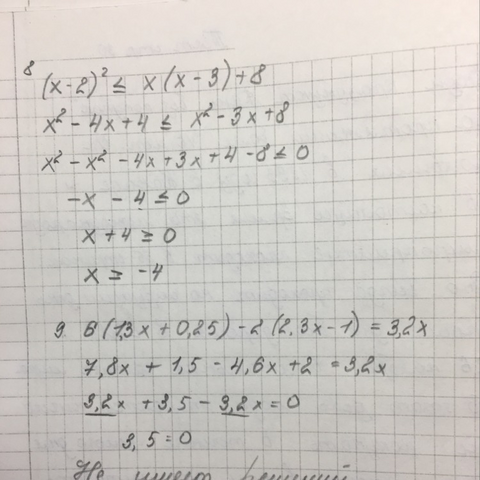 8 (x-2)² ≤ x(x-3)+8
x² - 4x + 4 ≤ x² - 3x + 8
x² - x² - 4x + 3x + 4 - 8 ≤ 0
-x - 4 ≤ 0
x + 4 ≥ 0
x ≥ -4
9. 6(1,3x + 0,25) - 2(2,3x - 1) = 3,2x
7,8x + 1,5 - 4,6x + 2 = 3,2x
3,2x + 3,5 - 3,2x = 0
3,5 = 0
Не имеет решений